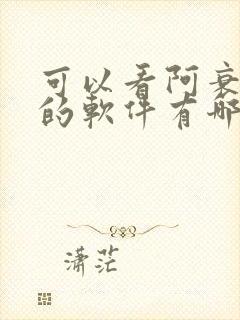 可以看阿衰
的軟件有哪
潇茫